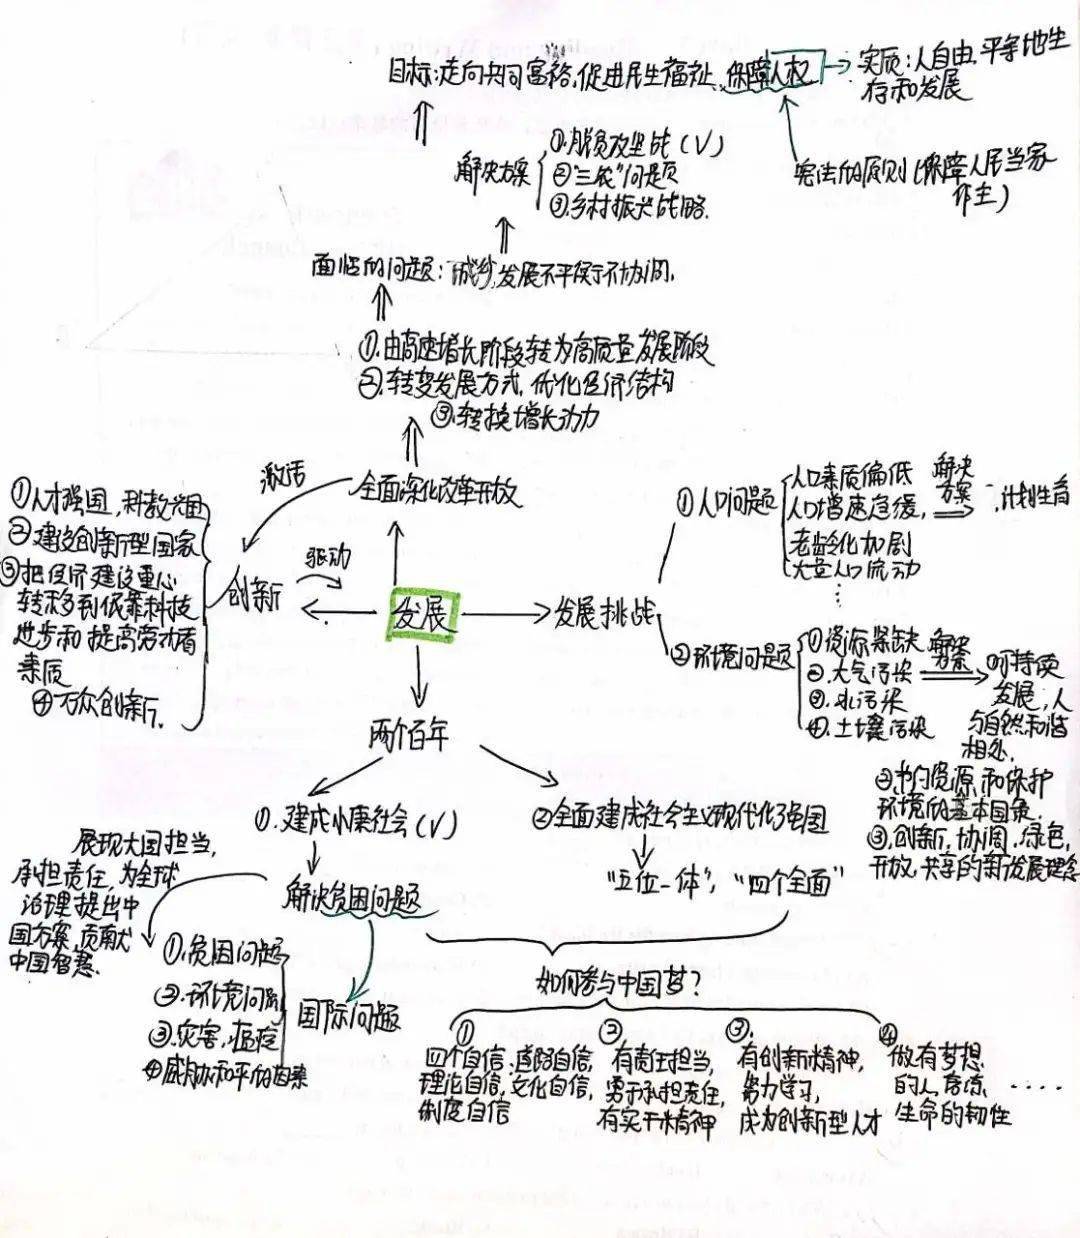 目标:走向共同富裕,促进民生福祉、保障人权
实质:人自由、平等地生
存和发展
解决方案
①脱贫攻坚战(√)
②"三农"问题
③乡村振兴战略.
宪法的原则(保障人民当家
作主)
面临的问题:城乡发展不平衡不协调.
①.由高速增长阶段转为高质量发展阶段
②.转变发展方式,优化经济结构
③.转换增长动力
激活
全面深化改革开放
①人才强国,科教兴国
②建设创新型国家
③把经济建设重心
转移到依靠科技
进步和提高劳动者
素质
④万众创新.
创新
驱动
发展
发展挑战
①人口问题
人口素质偏低
人口增速急缓,
老龄化加剧
大量人口流动
⋮
解决
方案
计划生育
②环境问题
①资源紧缺
②.大气污染
③.水污染
④.土壤污染
解决
方案
①可持续
发展,人
与自然和谐
相处.
②节约资源和保护
环境的基本国策.
③.创新,协调,绿色,
开放,共享的新发展理念
两个百年
①.建成小康社会(√)
②全面建成社会主义现代化强国
"五位一体","四个全面"
解决贫困问题
展现大国担当,
承担责任,为全球
治理提出中
国方案,贡献
中国智慧.
①.贫困问题
②.环境问题
③.灾害,瘟疫
④威胁和平的因素
国际问题
如何参与中国梦?
①
四个自信:道路自信,
理论自信,文化自信,
制度自信
②.
有责任担当,
勇于承担责任,
有实干精神
③.
有创新精神,
努力学习,
成为创新型人才
④
做有梦想
的人
生命的韧性
……